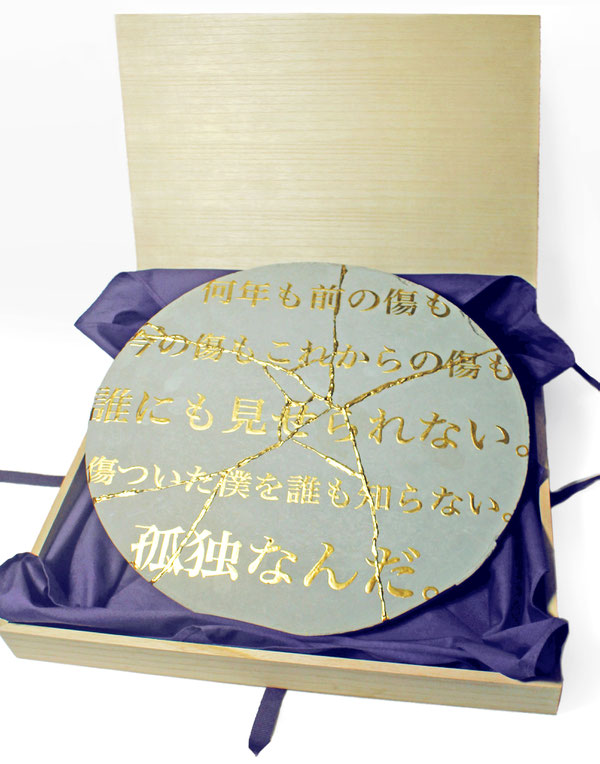 何年も前の傷も
今の傷もこれからの傷も
誰にも見せられない。
傷ついた僕を誰も知らない。
孤独なんだ。